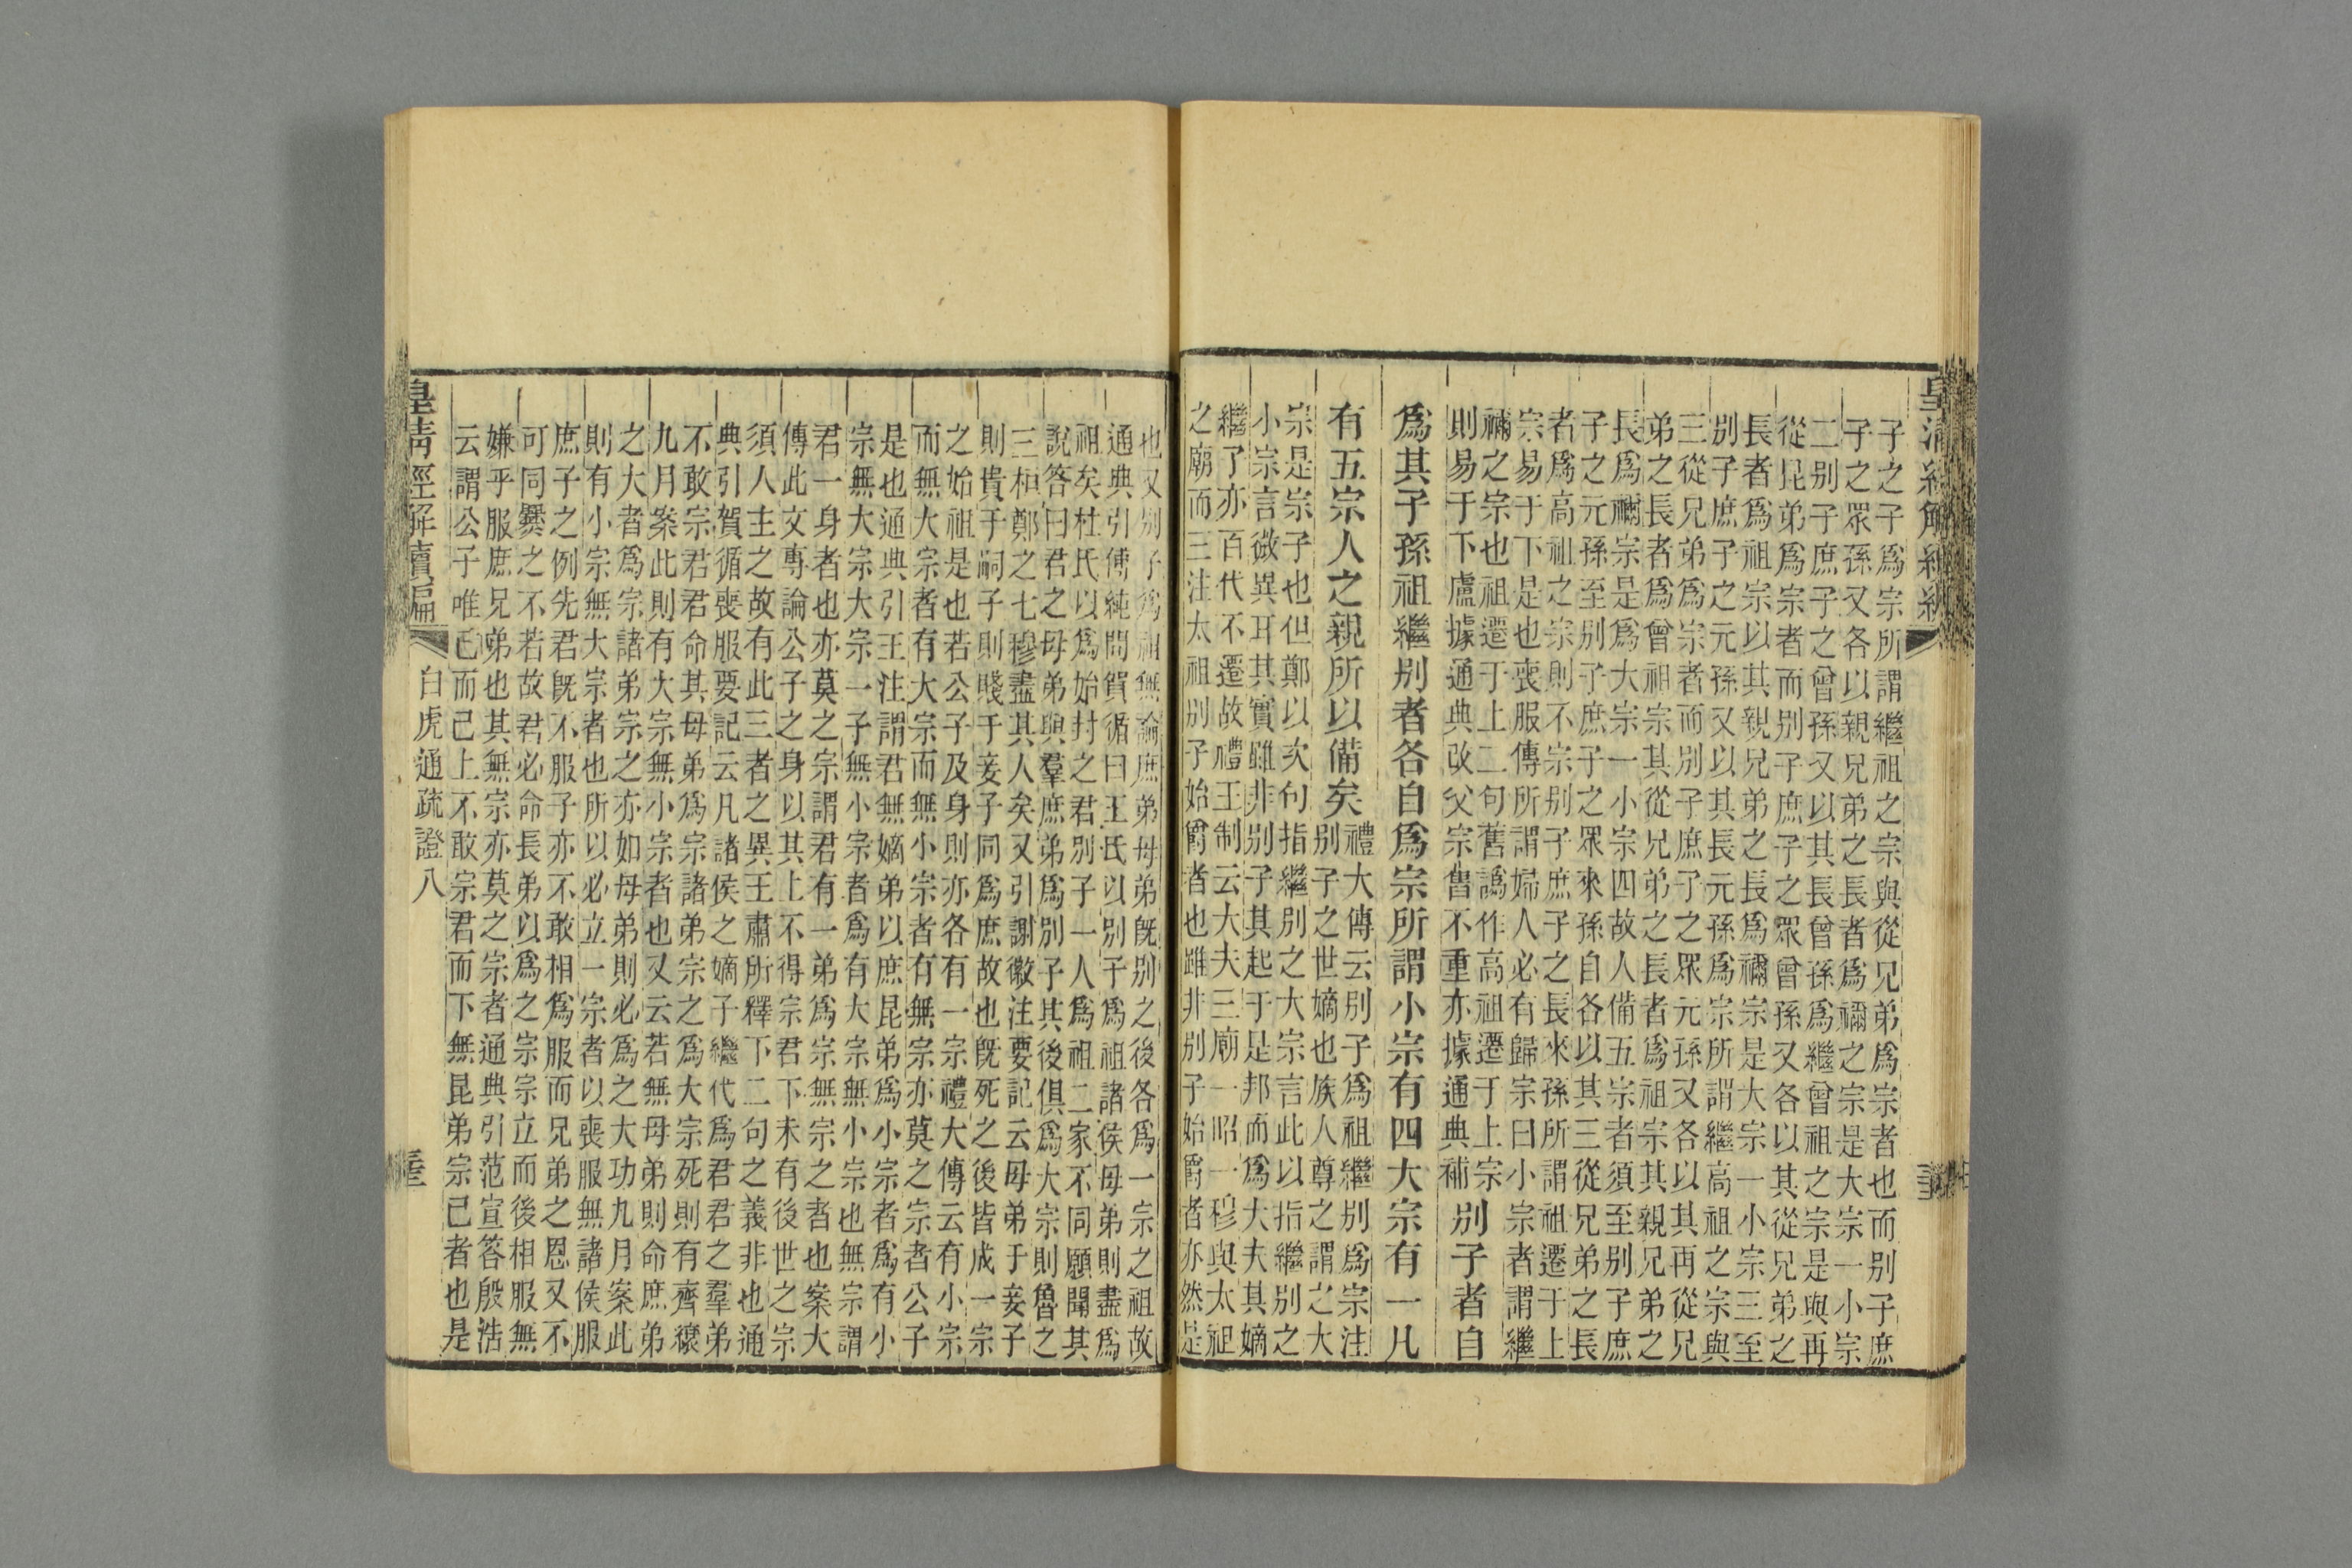 皇清經解續編
子之子爲宗所謂繼祖之宗與從兄弟爲宗者也而别子庶
子之眾孫又各以親兄弟之長者爲禰之宗是大宗一小宗
二别子庶子之曾孫又以其長曾孫爲繼曾祖之宗是與再
從昆弟爲宗者而别子庶子之眾曾孫又各以其從兄弟之
長者爲祖宗以其親兄弟之長爲禰宗是大宗一小宗三至
别子庶子之元孫又以其長元孫爲宗所謂繼高祖之宗與
三從兄弟爲宗者而别子庶子之眾元孫又各以其再從兄
弟之長者爲曾祖宗其從兄弟之長者爲祖宗其親兄弟之
長爲禰宗是爲大宗一小宗四故人備五宗者須至别子庶
子之元孫至别子庶子之眾來孫自各以其三從兄弟之長
者爲高祖之宗則不宗别子庶子之長來孫所謂祖遷于上
宗易于下是也喪服傳所謂婦人必有歸宗曰小宗者謂繼
禰之宗也祖遷于上二句舊譌作高祖遷于上宗
則易于下盧據通典改父宗舊不重亦據通典補
别子者自
爲其子孫祖繼别者各自爲宗所謂小宗有四大宗有一凡
有五宗人之親所以備矣
禮大傳云别子爲祖繼别爲宗注
别子之世嫡也族人尊之謂之大
宗是宗子也但鄭以次句指繼别之大宗言此以指繼别之
小宗言微異耳其實雖非别子其起于是邦而爲大夫其嫡
繼了亦百代不遷故禮王制云大夫三廟一昭一穆與太祖
之廟而三注太祖别子始爵者也雖非别子始爵者亦然是
也又别子爲祖無論庶弟母弟旣别之後各爲一宗之祖故
通典引傅純問賀循曰王氏以别子爲祖諸侯母弟則盡爲
祖矣杜氏以爲始封之君别子一人爲祖二家不同願聞其
說答曰君之母弟與羣庶弟爲别子其後俱爲大宗則魯之
三桓鄭之七穆盡其人矣又引謝徽注要記云母弟于妾子
則貴于嗣子則賤于妾子同爲庶故也旣死之後皆成一宗
之始祖是也若公子及身則亦各有一宗禮大傳云有小宗
而無大宗者有大宗而無小宗者有無宗亦莫之宗者公子
是也通典引王注謂君無嫡弟以庶昆弟爲小宗者爲有小
宗無大宗大宗一子無小宗者爲有大宗無小宗也無宗謂
君一身者也亦莫之宗謂君有一弟爲宗無宗之者也案大
傳此文專論公子之身以其上不得宗君下未有後世之宗
須人主之故有此三者之異王肅所釋下二句之義非也通
典引賀循喪服要記云凡諸侯之嫡子繼代爲君君之羣弟
不敢宗君君命其母弟爲宗諸弟宗之爲大宗死則有齊縗
九月案此則有大宗無小宗者也又云若無母弟則命庶弟
之大者爲宗諸弟宗之亦如母弟則必爲之大功九月案此
則有小宗無大宗者也所以必立一宗者以喪服無諸侯服
庶子之例先君旣不服子亦不敢相爲服而兄弟之恩又不
可同爨之不若故君必命長弟以爲之宗宗立而後相服無
嫌乎服庶兄弟也其無宗亦莫之宗者通典引范宣答殷浩
云謂公子唯己而已上不敢宗君而下無昆弟宗己者也是
皇清經解續編
白虎通疏證八